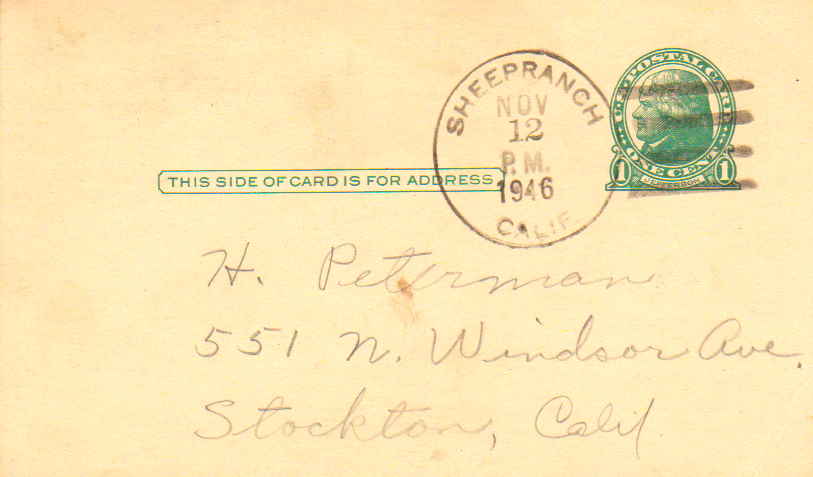 SHEEPRANCH
NOV
12
P.M.
1946
CALIF.
U.S. POSTAL CARD
ONE CENT
1 JEFFERSON 1
THIS SIDE OF CARD IS FOR ADDRESS
H. Peterman
551 N. Windsor Ave.
Stockton, Calif